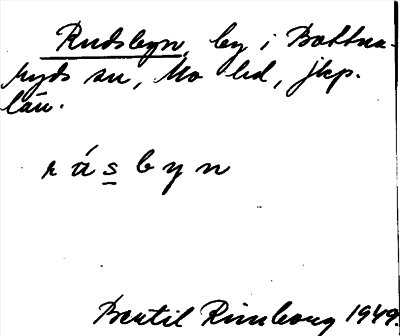 Rudsbyn, by i Bottna-
ryds sn, Mo hd, jkp.
län.
r á s b y n
Bertil Rimborg 1949.